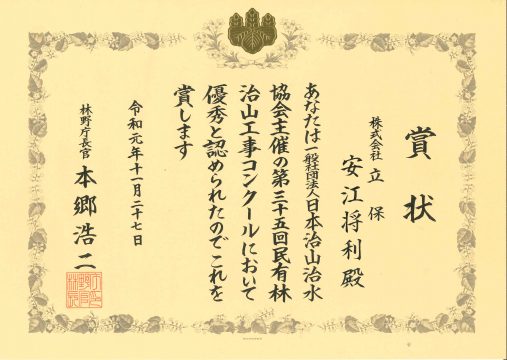 賞状
株式会社 立保
安江将利殿
あなたは一般社団法人日本治山治水
協会主催の第三十五回民有林
治山工事コンクールにおいて
優秀と認められたのでこれを
賞します
令和元年十一月二十七日
林野庁長官 本郷浩二